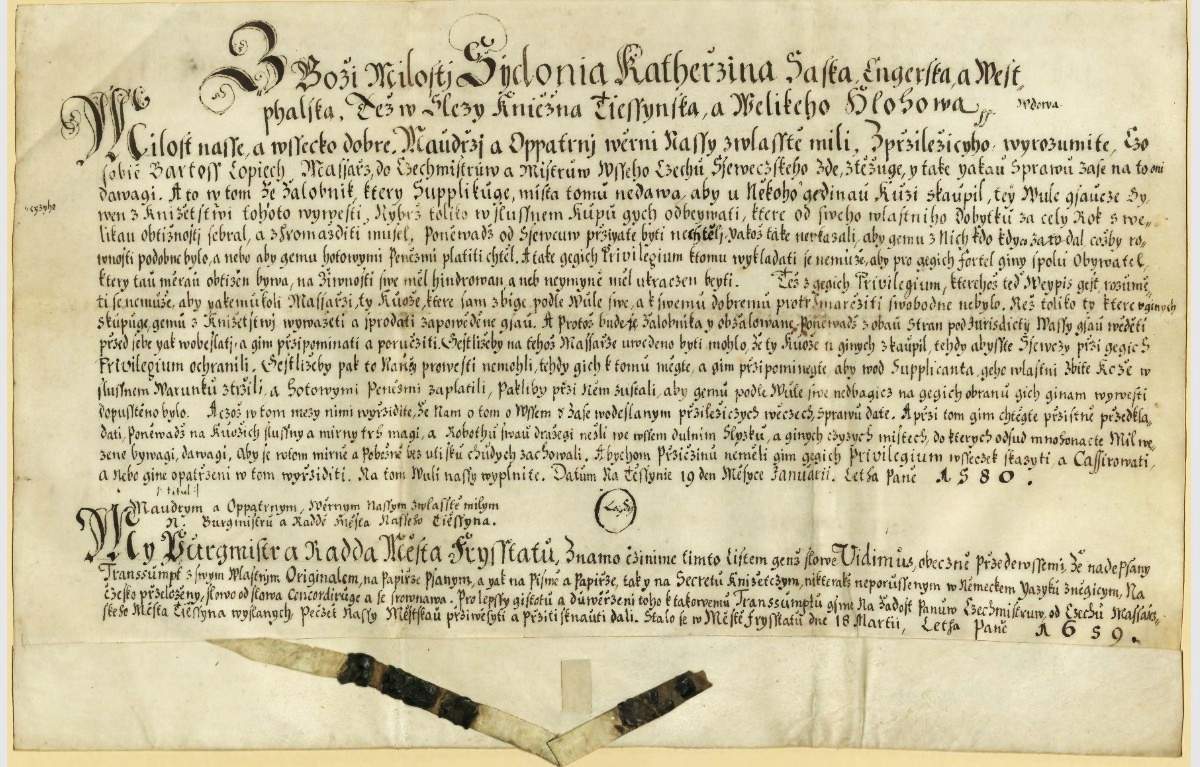 Z Boži Milostj Sydonia Katheržina Saska, Engerska, a West-
phalska, Též w Slezy Kniežna Tiessynska, a Welikeho Hlohowa Wdowa
Milost nasse, a wssecko dobre, Maudržj a Oppatrnj wěrni Nassy zwlasstě mili, Zpržiležicyho wyrozumite, Czo
sobič Bartoss Lopiech, Massarž, do Czechmistrůw a Mistrůw Wsseho Czechů Ssewczskeho zde, ztěžuge, y take yakau Sprawů zase na to oni
dawagi. A to w tom že žalobnik, ktery Supplikůge, mista tomu nedawa, aby u Někoho gedinau Kůži skaupil, tež Wule gsaucze By-
wen z Knižetstwi tohoto wywesti, Nybrž toliko w slussnem Kupů gych odbeywati, ktere od sweho wlastniho dobytků za cely Rok s we-
likau obtižnosti sebral, a shromazditi musel, Poněwadž od Ssewcuw pržiyate byti nechtělj, yakož take neukazali, aby gemu z Nich kdo kdy za to dal cožby ro-
wnosti podobne bylo, a nebo aby gemu hotowymi Penězmi platiti chtěl. A take gegich Priwilegium k tomu wykladati se nemůže, aby pro gegich fortel giny spolu Obywatel,
ktery tau měrau obtižen bywa, na Žiwnosti swe měl hindrowan, a neb neymyne měl ukraczen beyti. Tež z gegich Priwilegium, kterehož teď Weypis gest, rozumě-
ti se nemůže, aby yakemůkoli Massarži, ty Kuože, ktere sam zbige, podle Wůle swe, a k swemu dobremu protržmaržiti swobodne nebylo. Než toliko ty ktere w ginych
skupůge, gemu z Knižetstwj wywažeti a sprodati zapowěděne gsaů. A protož bude-te žalobnika y obžalowane, poněwadž s obau Stran pod Jurisdicty Wassy gsaů wěděti
pržed sebe yak wobeslatj, a gim pržipominati a poručžiti. Gestližeby na tehož Massarže uwedeno byti mohlo, že ty Kuože u ginych skaupil, tehdy abysste Ssewczy prži gegich
Priwilegium ochranili, Gestližeby pak to prowesti nemohli, tehdy gich k tomu měgte, a gim pržipominegte, aby wod Supplicanta, geho wlastni zbite Kože w
slussnem Warunků ztržili, a Hotowymi Penězmi zaplatili, Pakliby prži něm zustali, aby gemu podle Wule swe nedbagicz na gegich obranů gich ginam wywesti
dopusstěno bylo. A czož w tom mezy nimi wyržidite, že Nam o tom o wssem y zase wodeslanym pržiležiczych wěczech, sprawů date. A prži tom gim chtěgte pržistně pržedkla-
dati, poněwadž na Kuožich slussny a mirny trh magi, a Robothů swaů dražegi nežli we wssem dulnim Slyzků, a ginych czyzych mistech, do kterych odsud mnohonacte Mil we-
zene bywagi, dawagi, Aby se w tom mirně a Pobožně bez utisku chudych zachowali. Abychom Pržičžinů neměli gim gegich Priwilegium wsseczek skazyti, a Cassirowati,
a nebo gine opatrženi w tom wyržiditi. Na tom Wuli nassy wyplnite. Datum Na Tessynie 19 den Měsyce Januarii. Letha Paně 1580.
Titul
Maudrym a Oppatrnym, Wěrnym Nassym zwlasstě milym
N: Burgmistru a Raddě Města Nasseho Tiessyna.
My Půrgmistr a Radda Města Frysstatů, Znamo čžinime timto Listem genž slowe Vidimus, obecně pržedewssemi, Že nadepsany
Transsumpt z swym Wlastnym Originalem, na Papirže Psanym, a yak na Pismě a Papirže, tak y na Secretů Knižetczym, nikterakž neporůssenym w Německem Yazyků zněgicym, Na
Česko prželoženy, slowo od slowa Concordirůge a se srownawa. Pro lepssy gistotů a důwěrženi toho k takowemu Transsumptu gsme Na Žadost Panůw Czechmistrůw, od Czechů Massarž-
skeho Města Tiessyna wyslanych, Pečžet Nassy Městskaů pržiwěsyti a pržitisknauti dali. Stalo se w Městě Frysstatů dne 18 Martii, Letha Paně 1659.